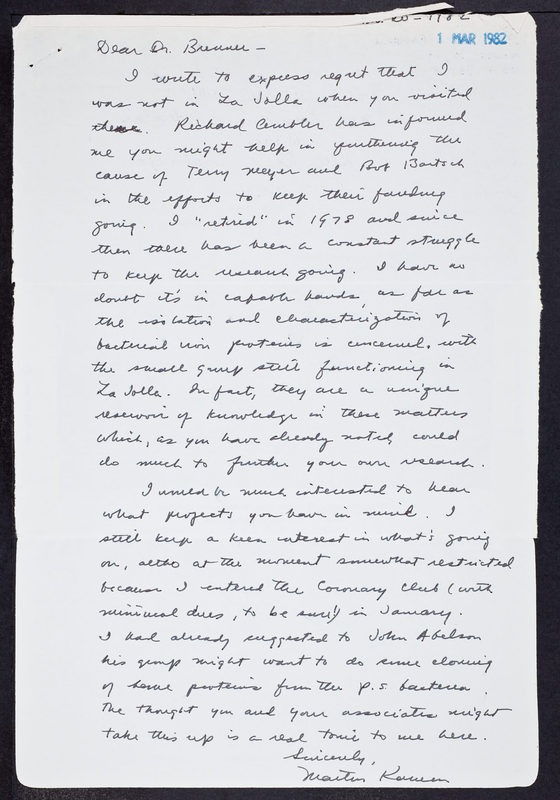 1 MAR 1982
Dear Dr. Brenner —
I write to express regret that I
was not in La Jolla when you visited
there. Richard Cembler has informed
me you might help in furthering the
cause of Terry Meyer and Bob Bartsch
in the efforts to keep their funding
going. I "retired" in 1978 and since
then there has been a constant struggle
to keep the research going. I have no
doubt it's in capable hands, as far as
the isolation and characterization of
bacterial iron proteins is concerned, with
the small group still functioning in
La Jolla. In fact, they are a unique
reservoir of knowledge in these matters
which, as you have already noted, could
do much to further your own research.
I would be much interested to hear
what projects you have in mind. I
still keep a keen interest in what's going
on, altho at the moment somewhat restricted
because I entered the Coronary Club (with
minimal dues, to be sure!) in January.
I had already suggested to John Abelson
his group might want to do some cloning
of heme proteins from the p.s. bacteria.
The thought you and your associates might
take this up is a real tonic to me here.
Sincerely,
Martin Kamen